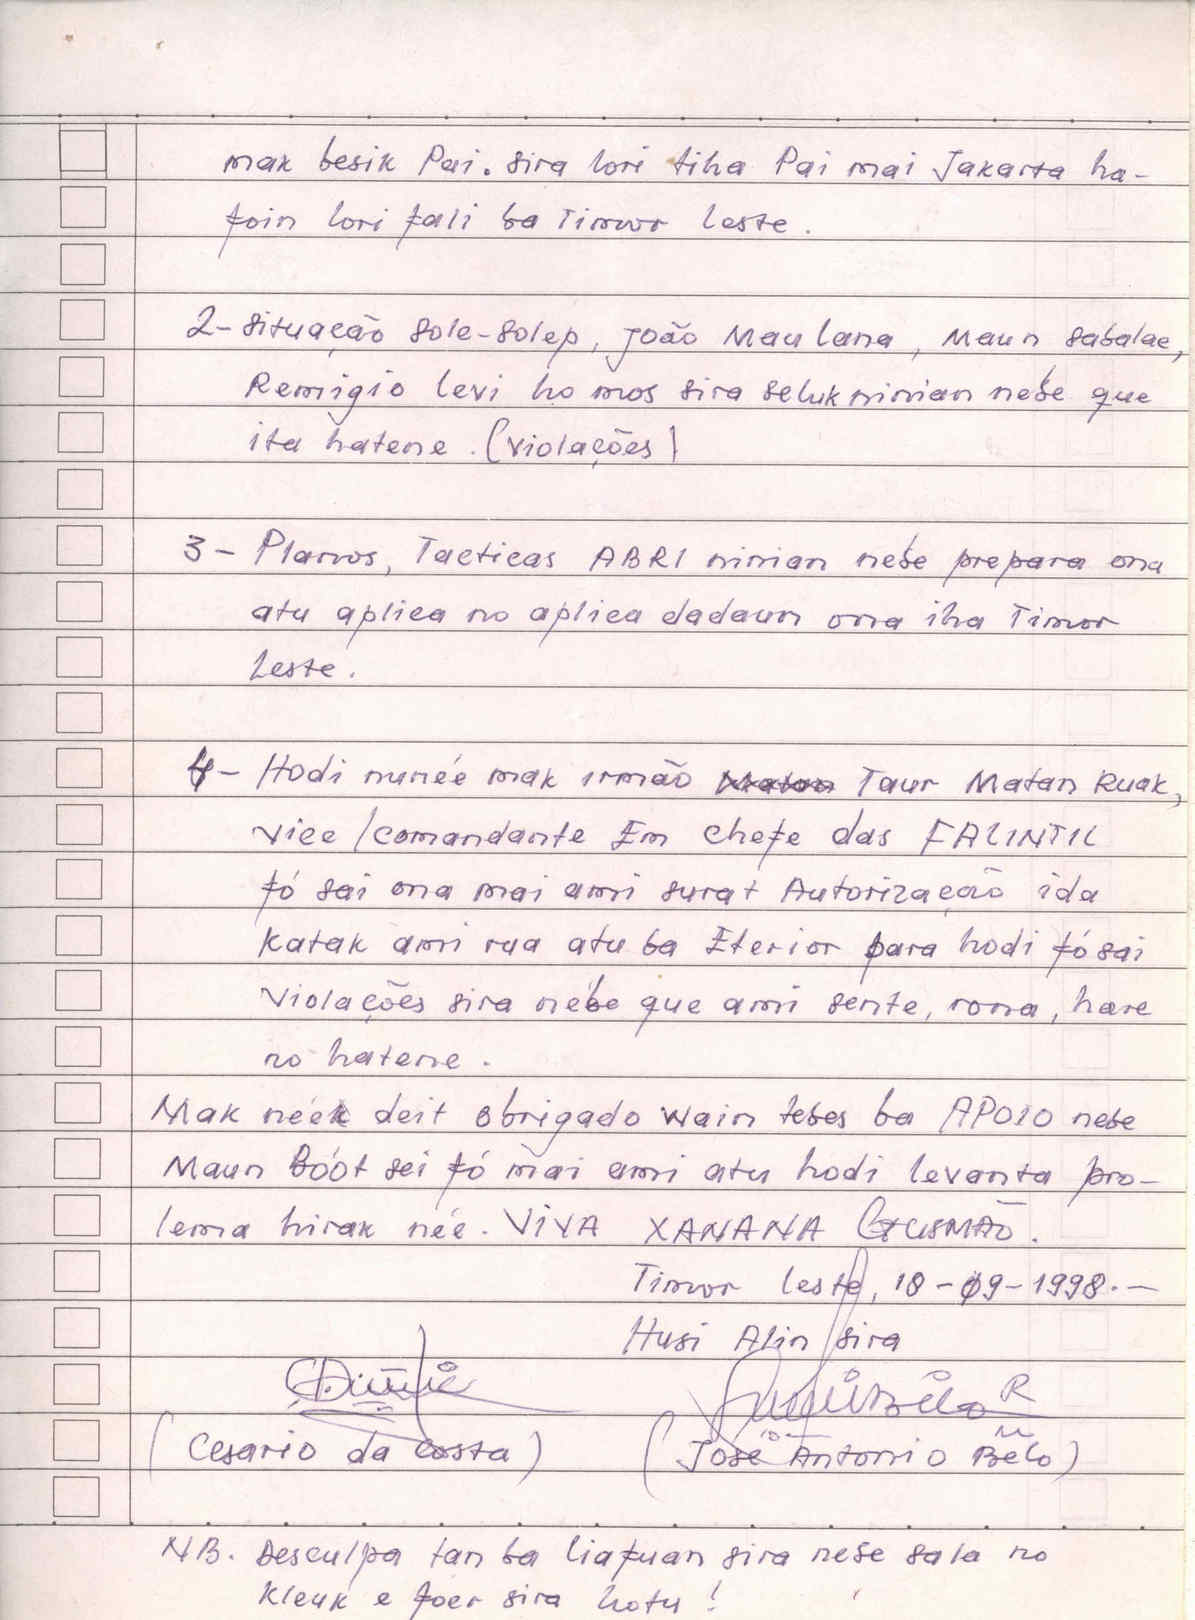 mak besik Pai. sira lori tiha Pai mai Jakarta ha-
foin lori fali ba Timor Leste.
2- Situação Sole-Solep, João Maulana, Maun Sabalae,
Remigio Levi ho mos sira seluk ninian nebe que
ita hatene. (Violações)
3- Planos, Tacticas ABRI ninian nebe prepara ona
atu aplica no aplica dadaun ona iha Timor
Leste.
4- Hodi nune'e mak irmão Taur Matan Ruak,
Vice/Comandante Em chefe das FALINTIL
fó sai ona mai ami surat Autorização ida
Katak ami rua atu ba Eterior para hodi fó sai
Violações sira nebe que ami sente, rona, hare
no hatene.
Mak née'k deit obrigado wain tebes ba APOIO nebe
Maun Bóót sei fó mai ami atu hodi levanta pro-
lema hirak née. ViVA XANANA GUSMÃO.
Timor Leste, 18-09-1998.-
Husi Alin sira
(Cesario da Costa) (José Antonio Belo)
NB. Desculpa tan ba liafuan sira nebe sala no
Kleuk e foer sira hotu!